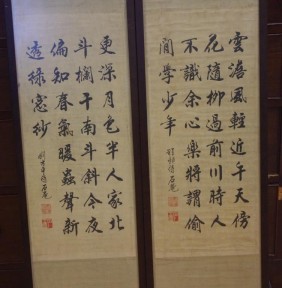 雲澹風輕近午天傍
花隨柳過前川時人
不識余心樂將謂偷
閒學少年
石庵
更深月色半人家北
斗欄干南斗斜今夜
偏知春氣暖蟲聲新
透綠窓紗
石庵